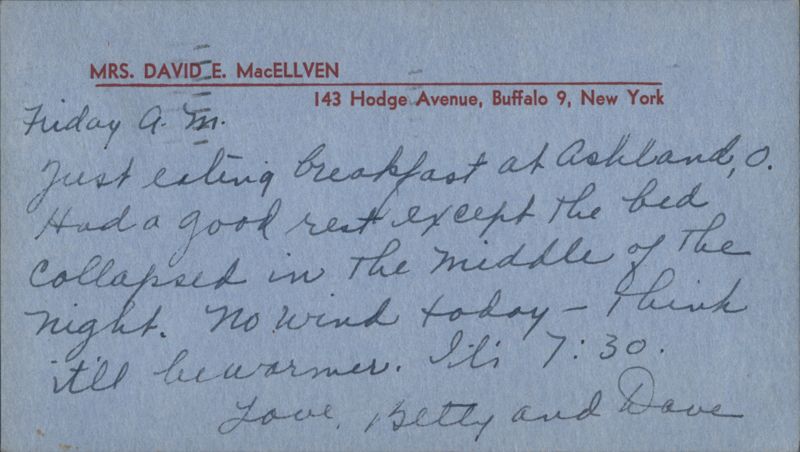 MRS. DAVID E. MacELLVEN
143 Hodge Avenue, Buffalo 9, New York
Friday A.M.
Just eating breakfast at Ashland, O.
Had a good rest except the bed
collapsed in the middle of the
night. No wind today – think
it'll be warmer. It's 7:30.
Love, Betty and Dave